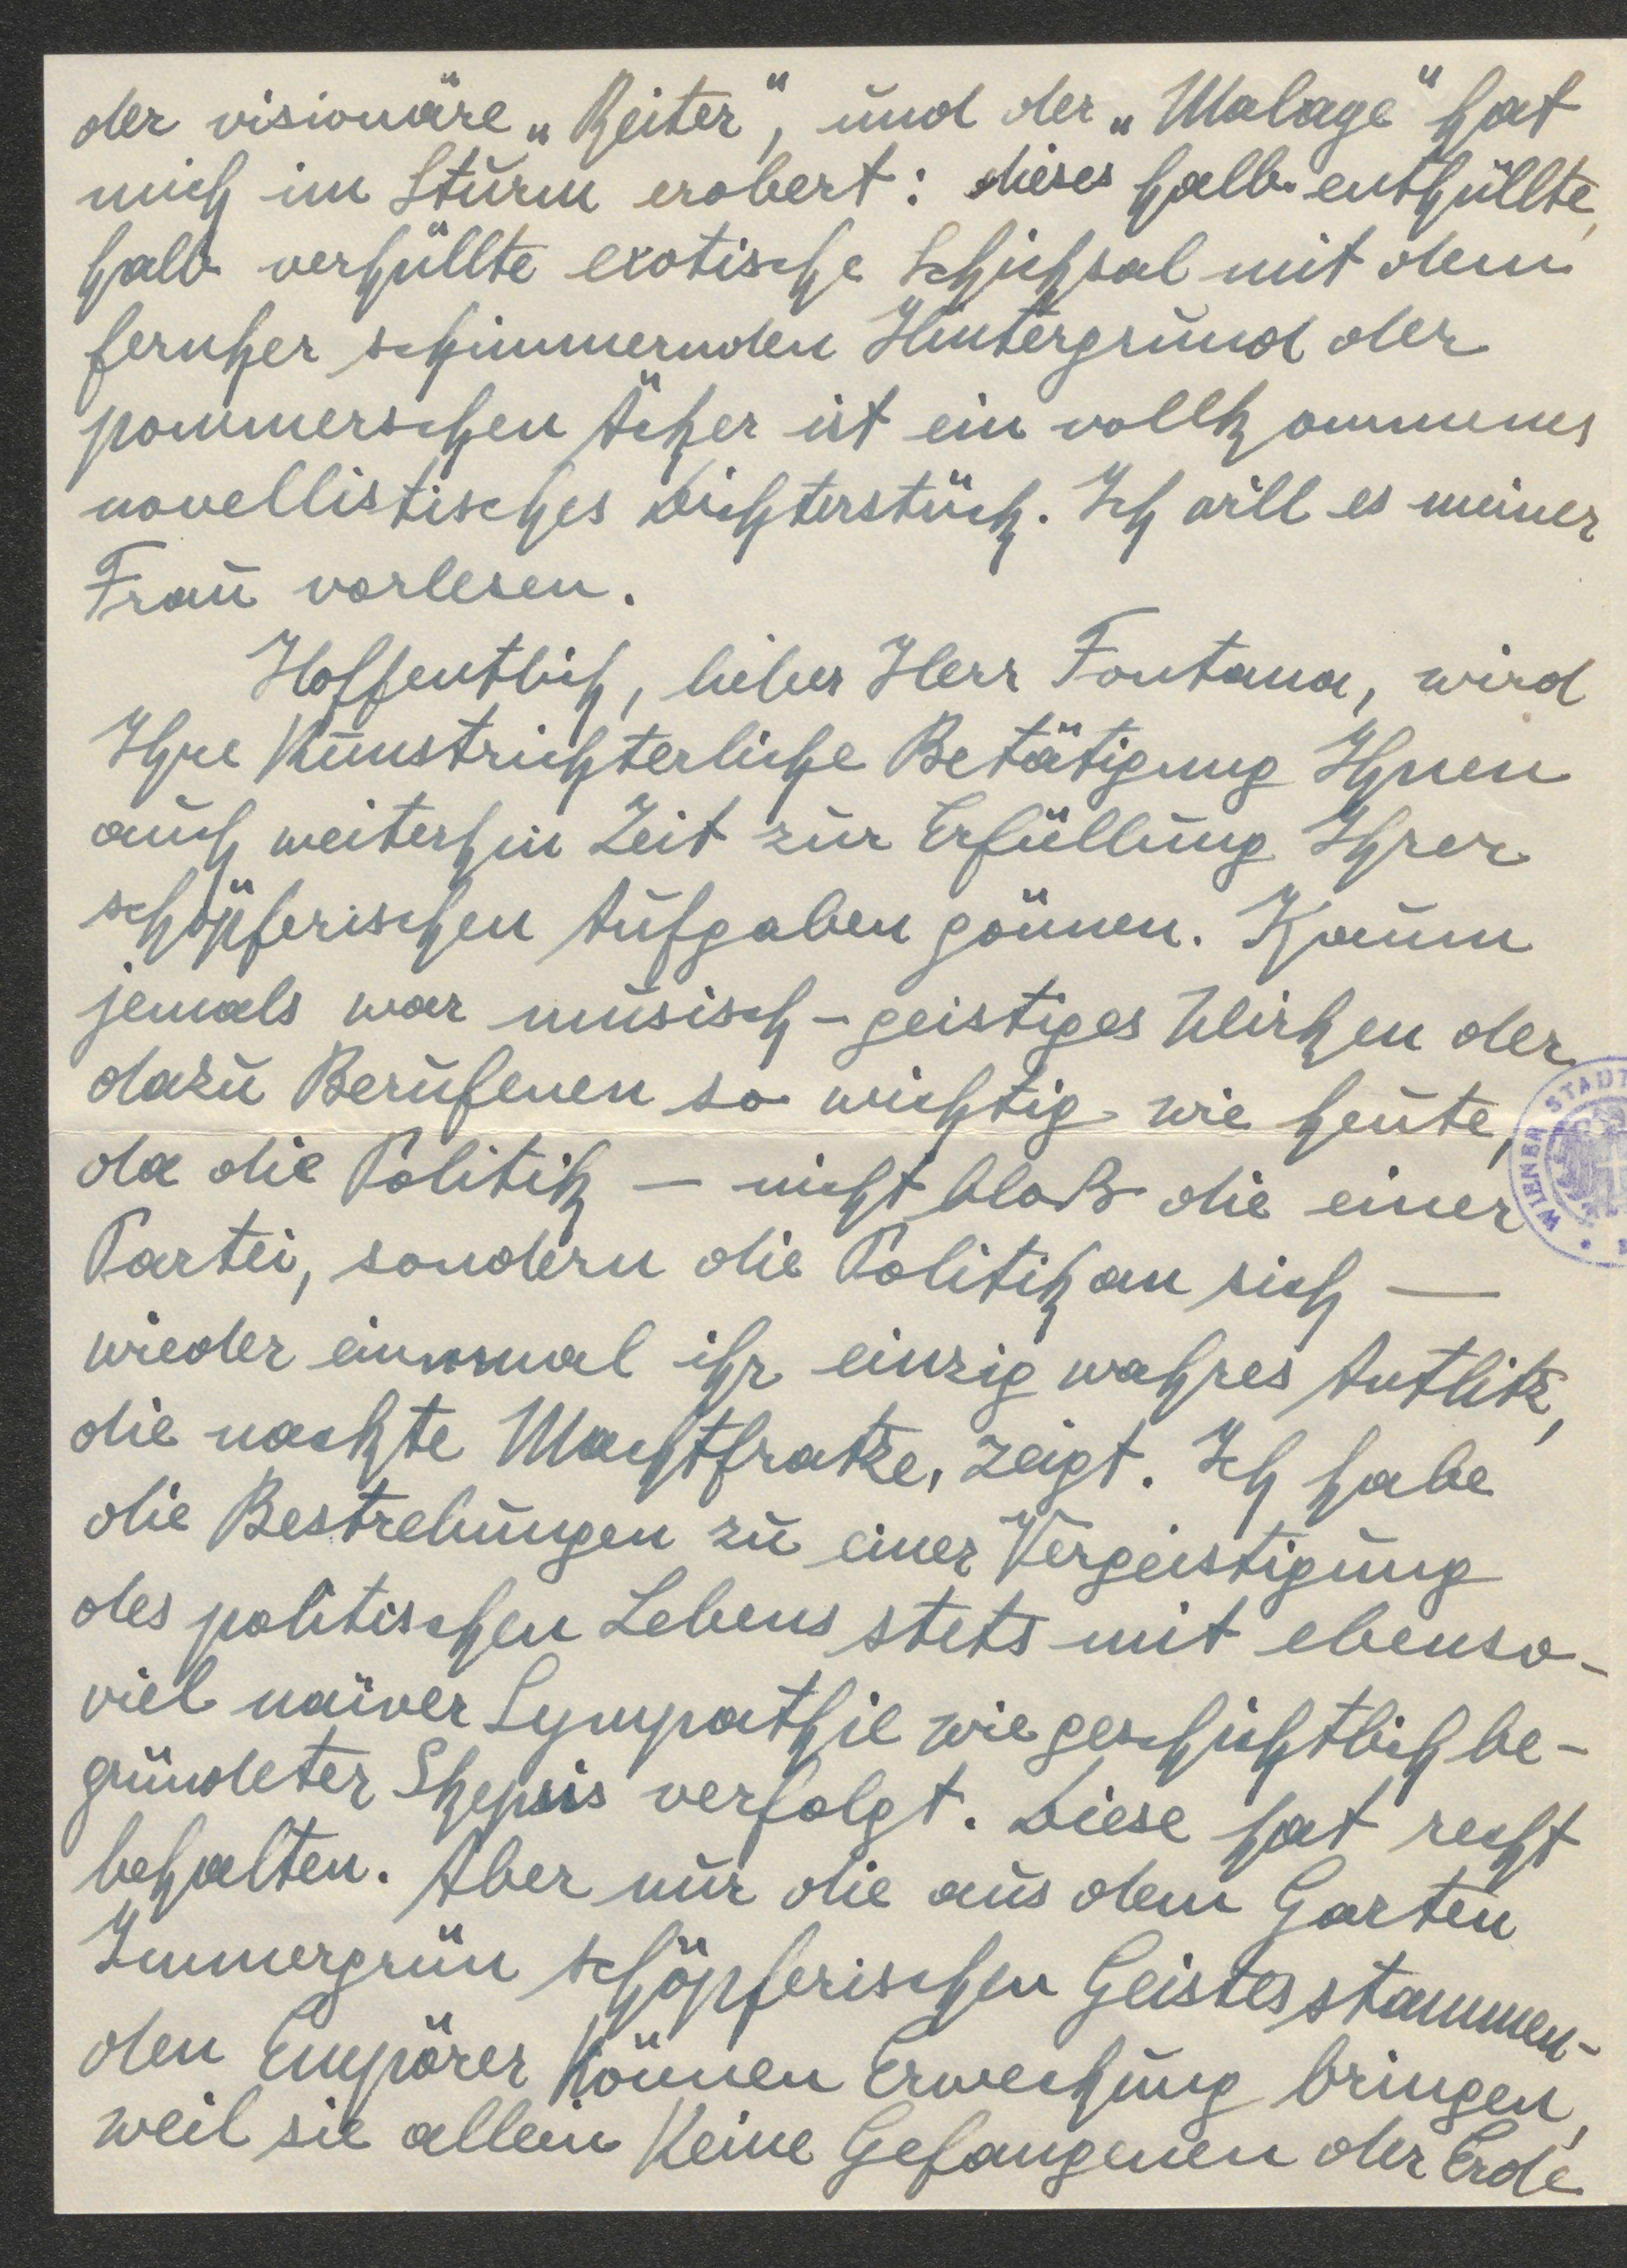 der visionäre „Reiter“, und der „Malage“ hat
mich im Sturm erobert: dieses halb enthüllte,
halb verhüllte exotische Schicksal mit dem
fernher schimmernden Hintergrund der
pommerschen Äcker ist ein vollkommenes
novellistisches Dichterstück. Ich will es meiner
Frau vorlesen.
Hoffentlich, lieber Herr Fontana, wird
Ihre kunstrichterliche Betätigung Ihnen
auch weiterhin Zeit zur Erfüllung Ihrer
schöpferischen Aufgaben gönnen. Kaum
jemals war musisch-geistiges Wirken der
dazu Berufenen so wichtig wie heute,
da die Politik — nicht bloß die einer
Partei, sondern die Politik an sich —
wieder einmal ihr einzig wahres Antlitz,
die nackte Machtfratze, zeigt. Ich habe
die Bestrebungen zu einer Vergeistigung
des politischen Lebens stets mit ebenso-
viel naiver Sympathie wie geschichtlich be-
gründeter Skepsis verfolgt. Diese hat recht
behalten. Aber nur die aus dem Garten
Immergrün schöpferischen Geistes stammen-
den Empörer können Erweckung bringen,
weil sie allein keine Gefangenen der Erde
WIENER STADT